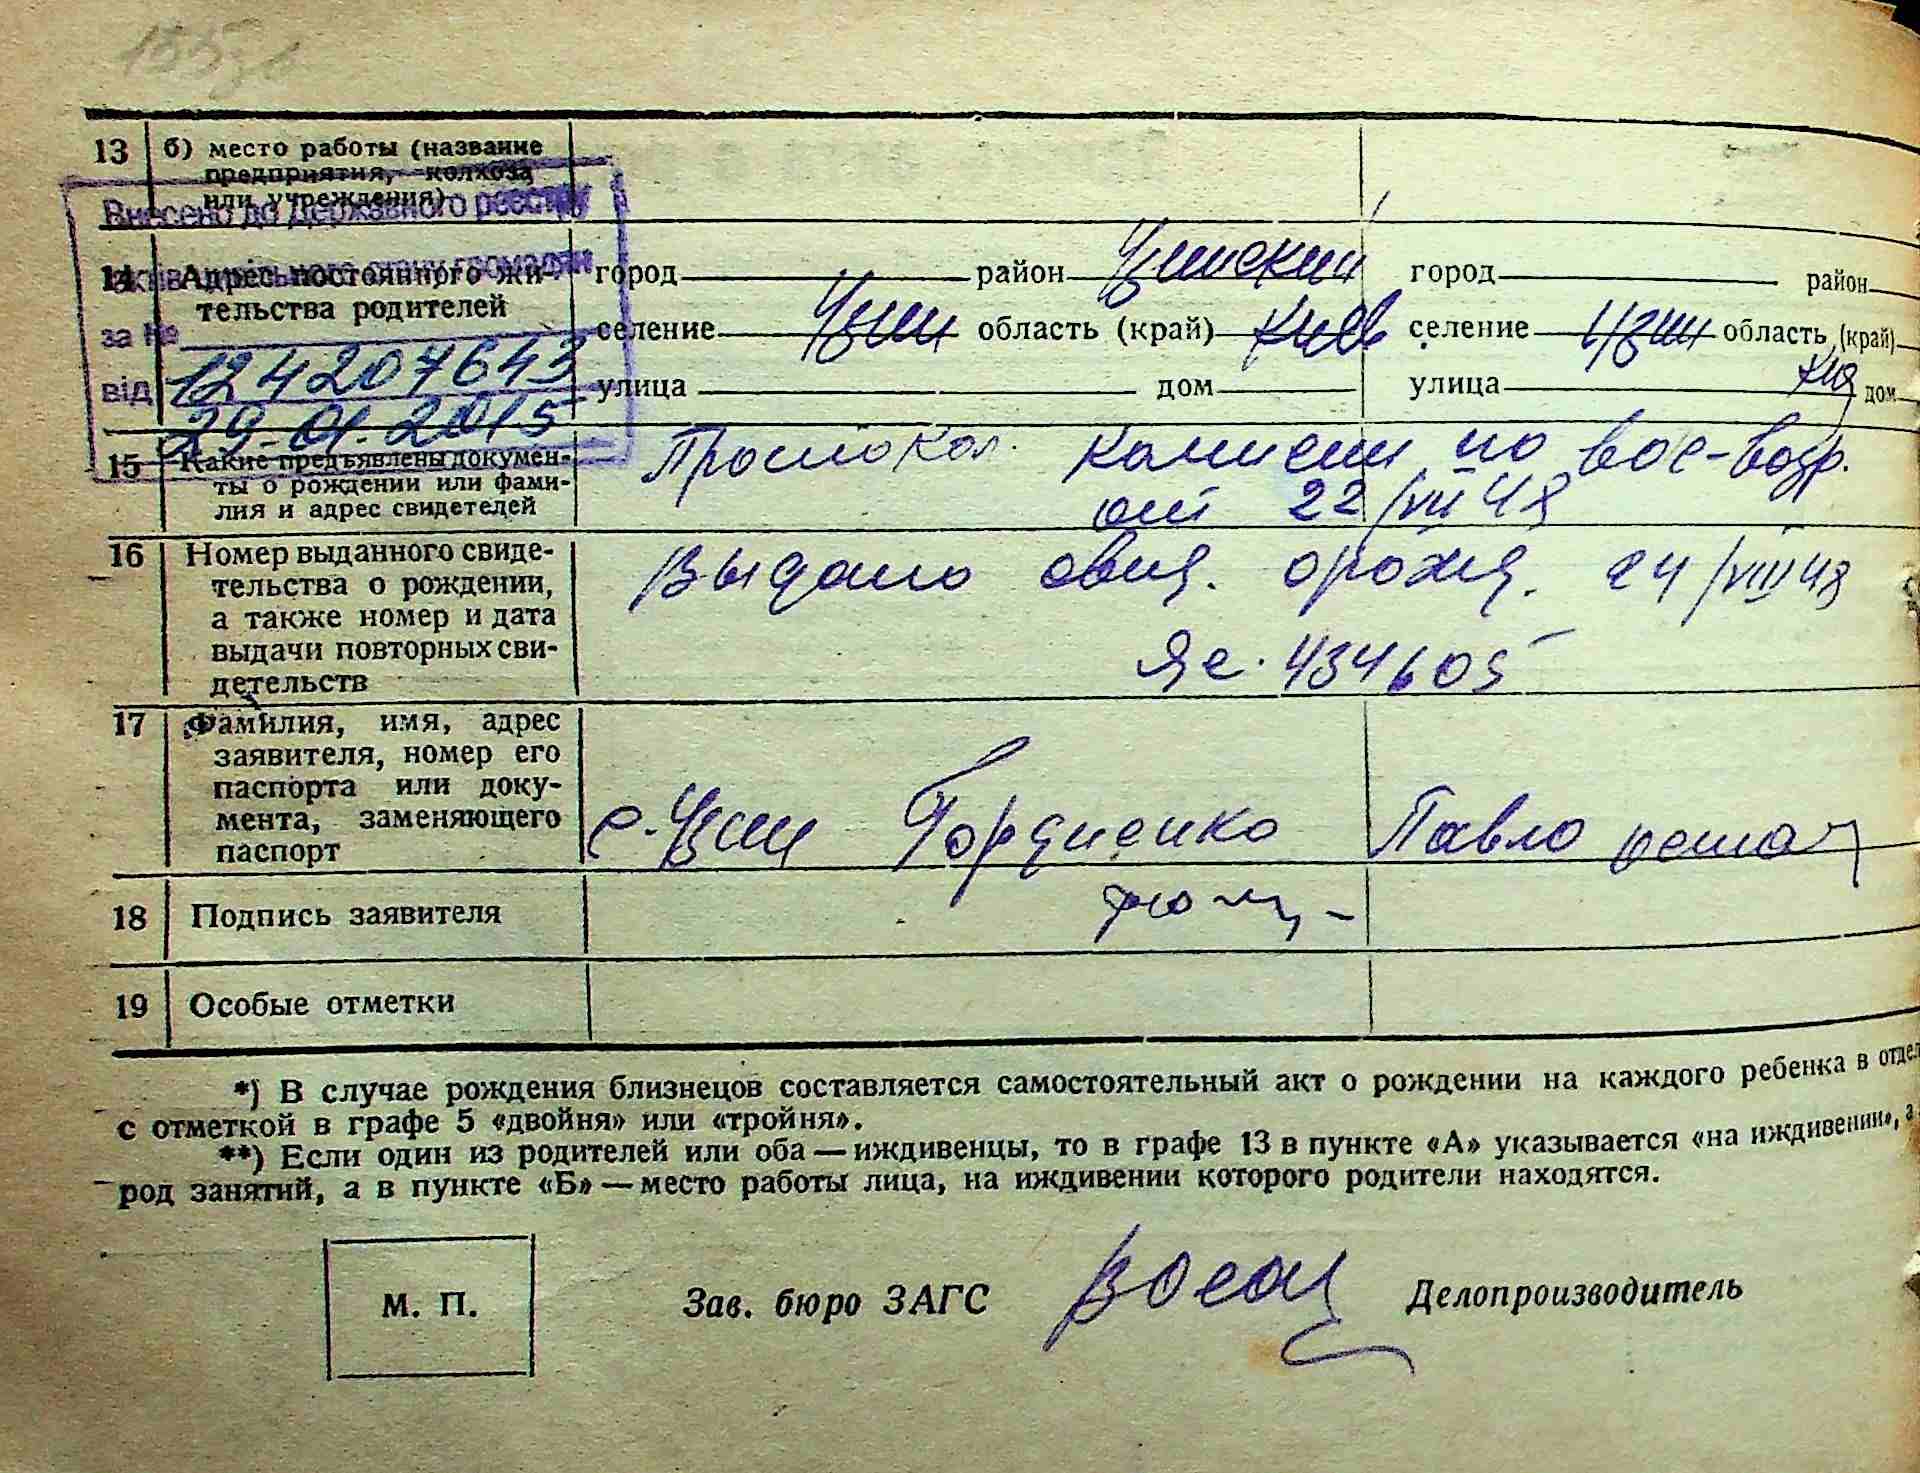 13 б) место работы (название
предприятия, колхоза
или учреждения)
Внесено до Державного реєстру
громадян
за №
124207643
від 29.01.2015
14 Адрес постоянного жи-
тельства родителей
город район Узинский город район
селение Узин область (край) Киев селение Узин область (край)
улица дом улица Киев дом
15 Какие предъявлены докумен-
ты о рождении или фами-
лия и адрес свидетелей
Протокол комисии по вос-возр.
от 22/VII 48
16 Номер выданного свиде-
тельства о рождении,
а также номер и дата
выдачи повторных сви-
детельств
Выдано свид. о рожд. 24/VIII 48
ЯС. 434605
17 Фамилия, имя, адрес
заявителя, номер его
паспорта или доку-
мента, заменяющего
паспорт
с. Узин Гордиенко Павло
18 Подпись заявителя
19 Особые отметки
*) В случае рождения близнецов составляется самостоятельный акт о рождении на каждого ребенка в отдел
с отметкой в графе 5 «двойня» или «тройня».
**) Если один из родителей или оба — иждивенцы, то в графе 13 в пункте «А» указывается «на иждивении», а
род занятий, а в пункте «Б» — место работы лица, на иждивении которого родители находятся.
М. П. Зав. бюро ЗАГС Делопроизводитель